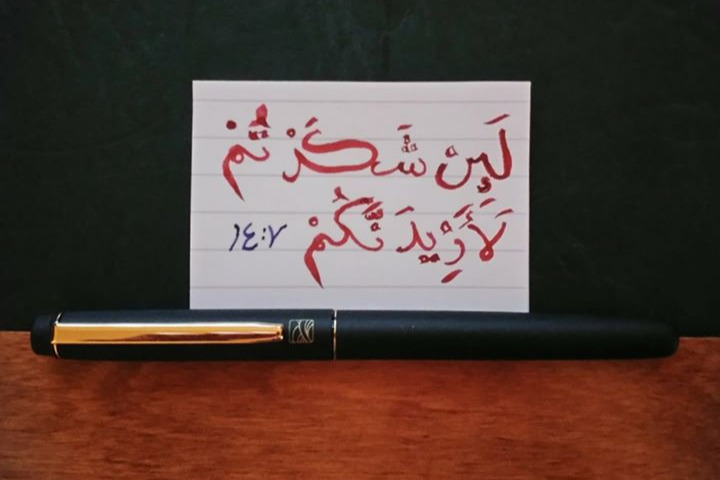 لَئِنْ شَكَرْتُمْ
لَأَزِيدَنَّكُمْ ١٤:٧